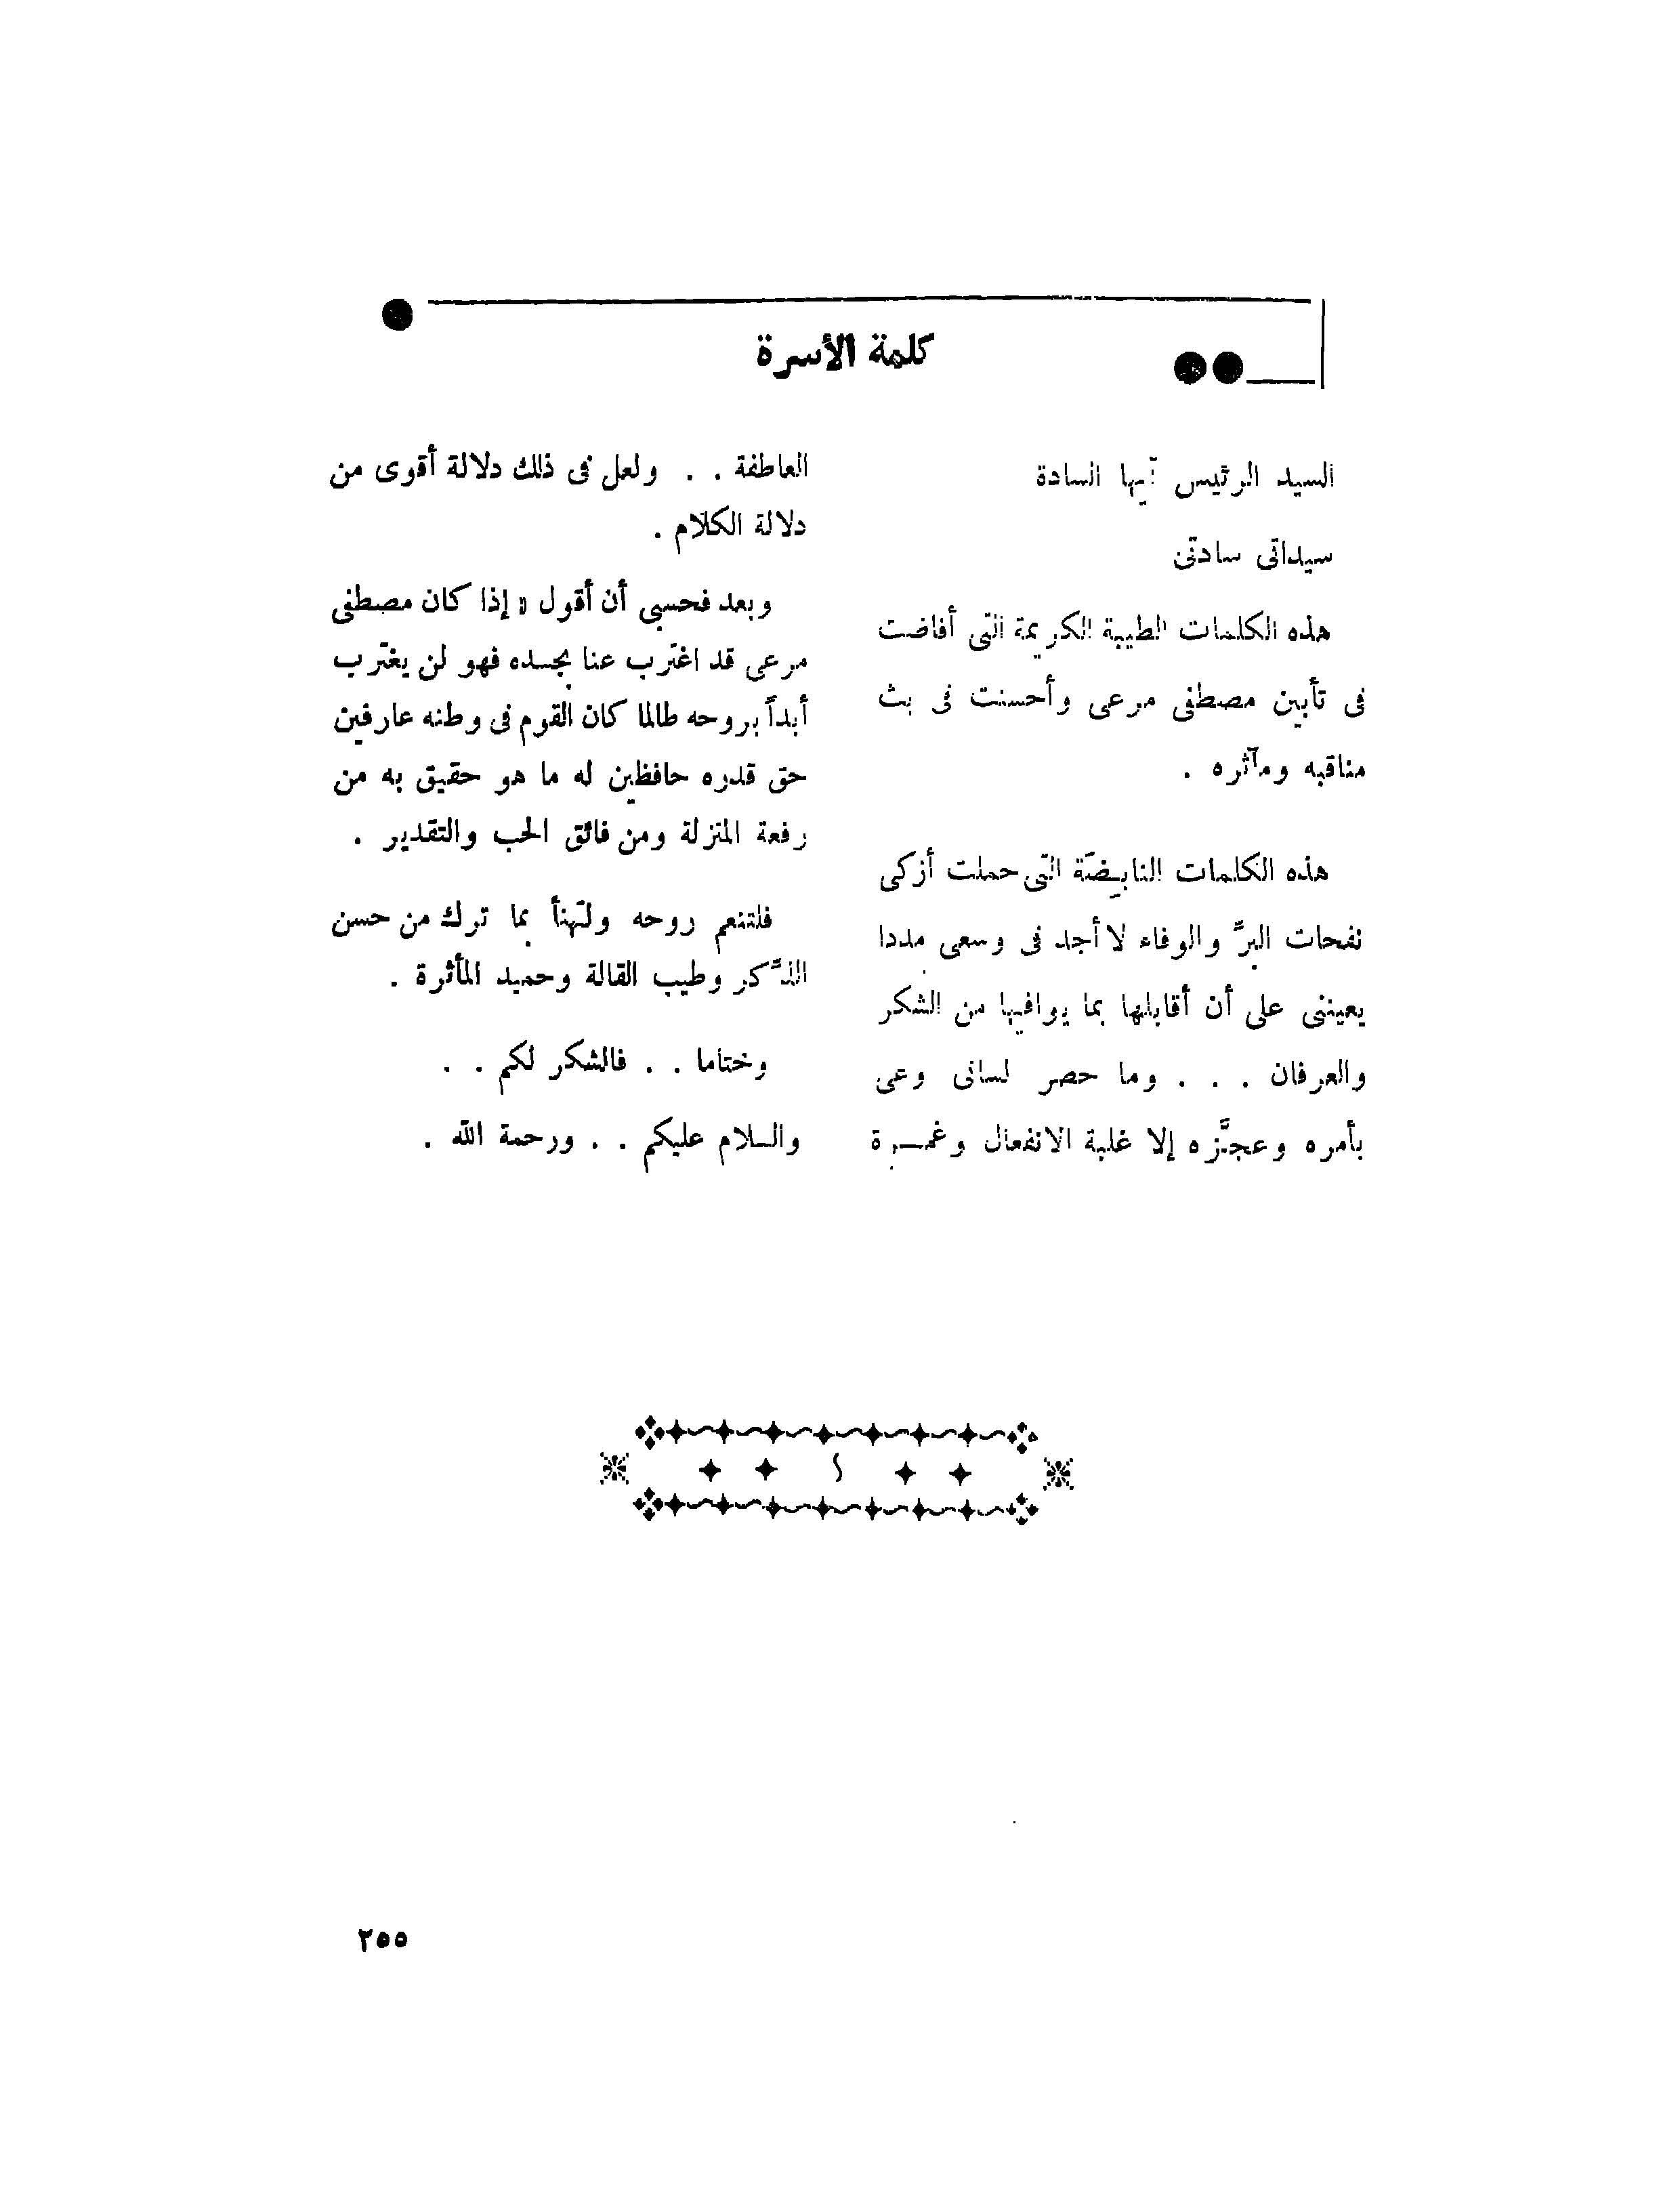 كلمة الأسرة
السيد الرئيس أيها السادة
سيداتى سادتى
هذه الكلمات الطيبة الكريمة التى أفاضت
فى تأبين مصطفى مرعى وأحسنت فى بث
مناقبه ومآثره .
هذه الكلمات النابضة التى حملت أزكى
نفحات البرَّ والوفاء لا أجد فى وسعى مددا
يعيننى على أن أقابلها بما يوافيها من الشكر
والعرفان . . . وما حصر لسانى وعى
بأمره وعجَّزه إلا غلبة الانفعال وغمـرة
العاطفة . . ولعل فى ذلك دلالة أقوى من
دلالة الكلام .
وبعد فحسبى أن أقول « إذا كان مصطفى
مرعى قد اغترب عنا بجسده فهو لن يغترب
أبداً بروحه طالما كان القوم فى وطنه عارفين
حق قدره حافظين له ما هو حقيق به من
رفعة المنزلة ومن فائق الحب والتقدير .
فلتنعم روحه ولتهنأ بما ترك من حسن
الذَّكر وطيب القالة وحميد المأثرة .
وختاما . . فالشكر لكم . .
والسلام عليكم . . ورحمة الله .
٢٥٥